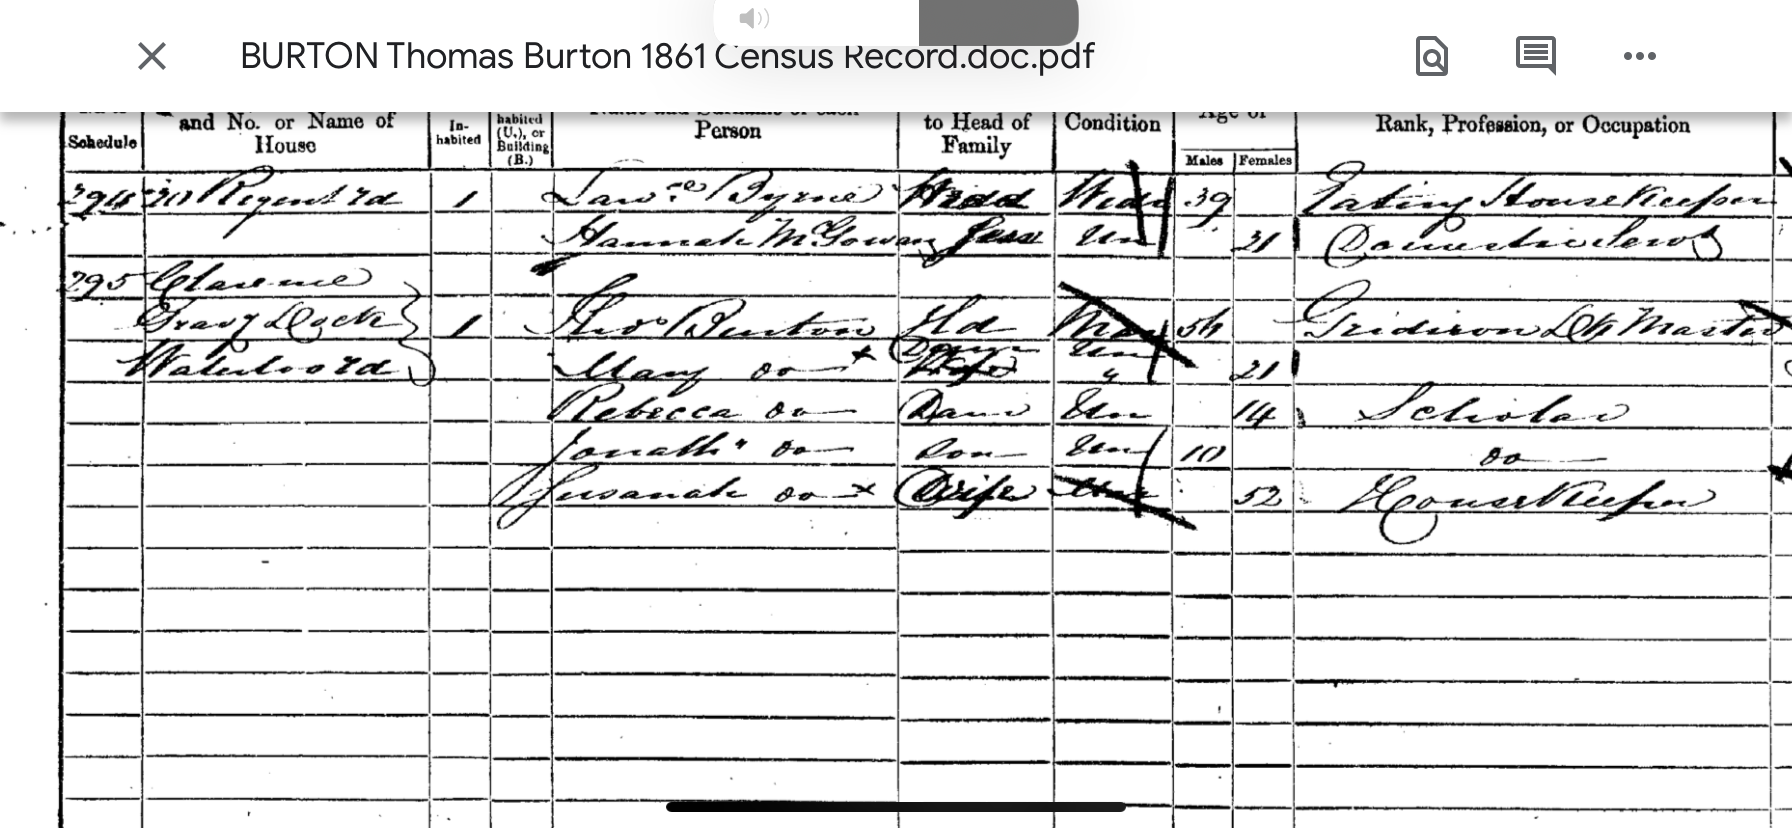 BURTON Thomas Burton 1861 Census Record.doc.pdf
Schedule and No. or Name of House In-habited habited (U.), or Building (B.) Name and Surname of each Person to Head of Family Condition Age of Males Females Rank, Profession, or Occupation
294 30 Regent Rd 1 Lawce Byrne Head Widr 39 Eating House Keeper
Hannah McGowan Serv Un 31 Domestic Servt
295 Clarence
Gravg Dock 1 Thos Burton Hd Mar 54 Gridiron Dk Master
Waterloo Rd Mary do Un 21
Rebecca do Daur Un 14 Scholar
Jonathn do Son Un 10 do
Susanah do Wife 52 House Keeper